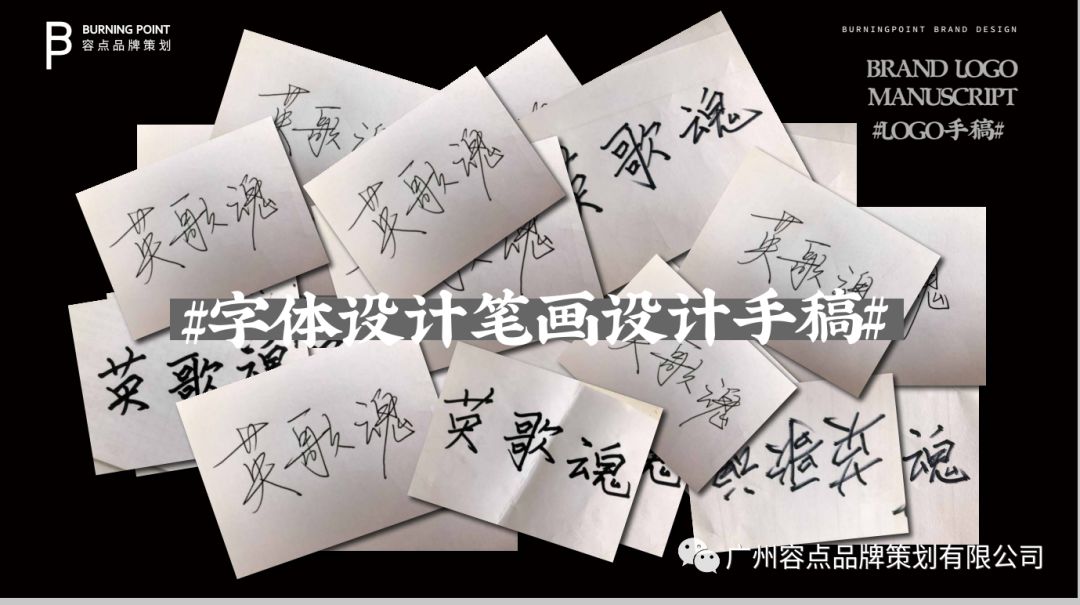 BURNING POINT
容点品牌策划
BURNINGPOINT BRAND DESIGN
BRAND LOGO
MANUSCRIPT
#LOGO手稿#
英歌魂
英歌魂
英歌魂
英歌魂
英歌魂
#字体设计笔画设计手稿#
英歌魂
英歌魂
英歌魂
歌魂
魂
广州容点品牌策划有限公司